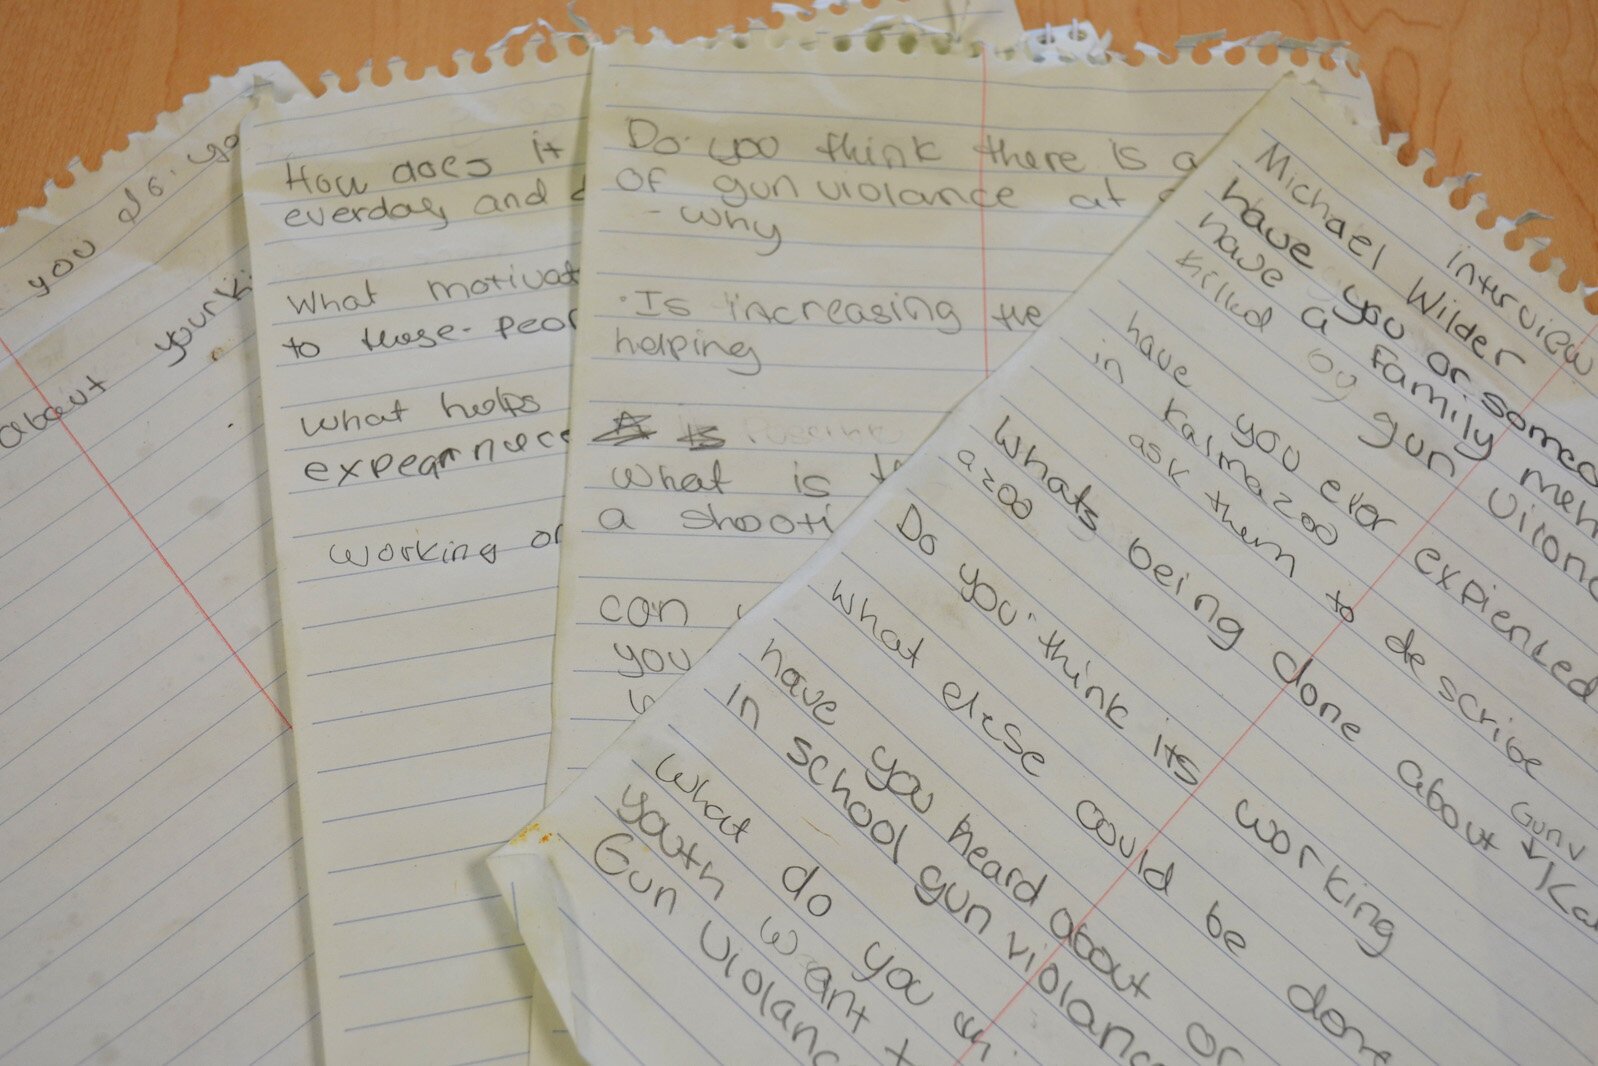 you
about your
How does it
everday and
What motivat
to those peop
What helps
expearnuece
working or
Do you think there is a
of gun violance at
- why
Is increasing the
helping
What is
a shooti
can
you
Michael Wilder interview
have you or someo
have a family mem
killed by gun violanc
have you ever expienced Gunv
in Kalmazoo
ask them to describe
Whats being done about Kal
azoo
Do you think its working
What else could be done
have you heard about or
in school gun violanc
What do you
youth want t
Gun violanc